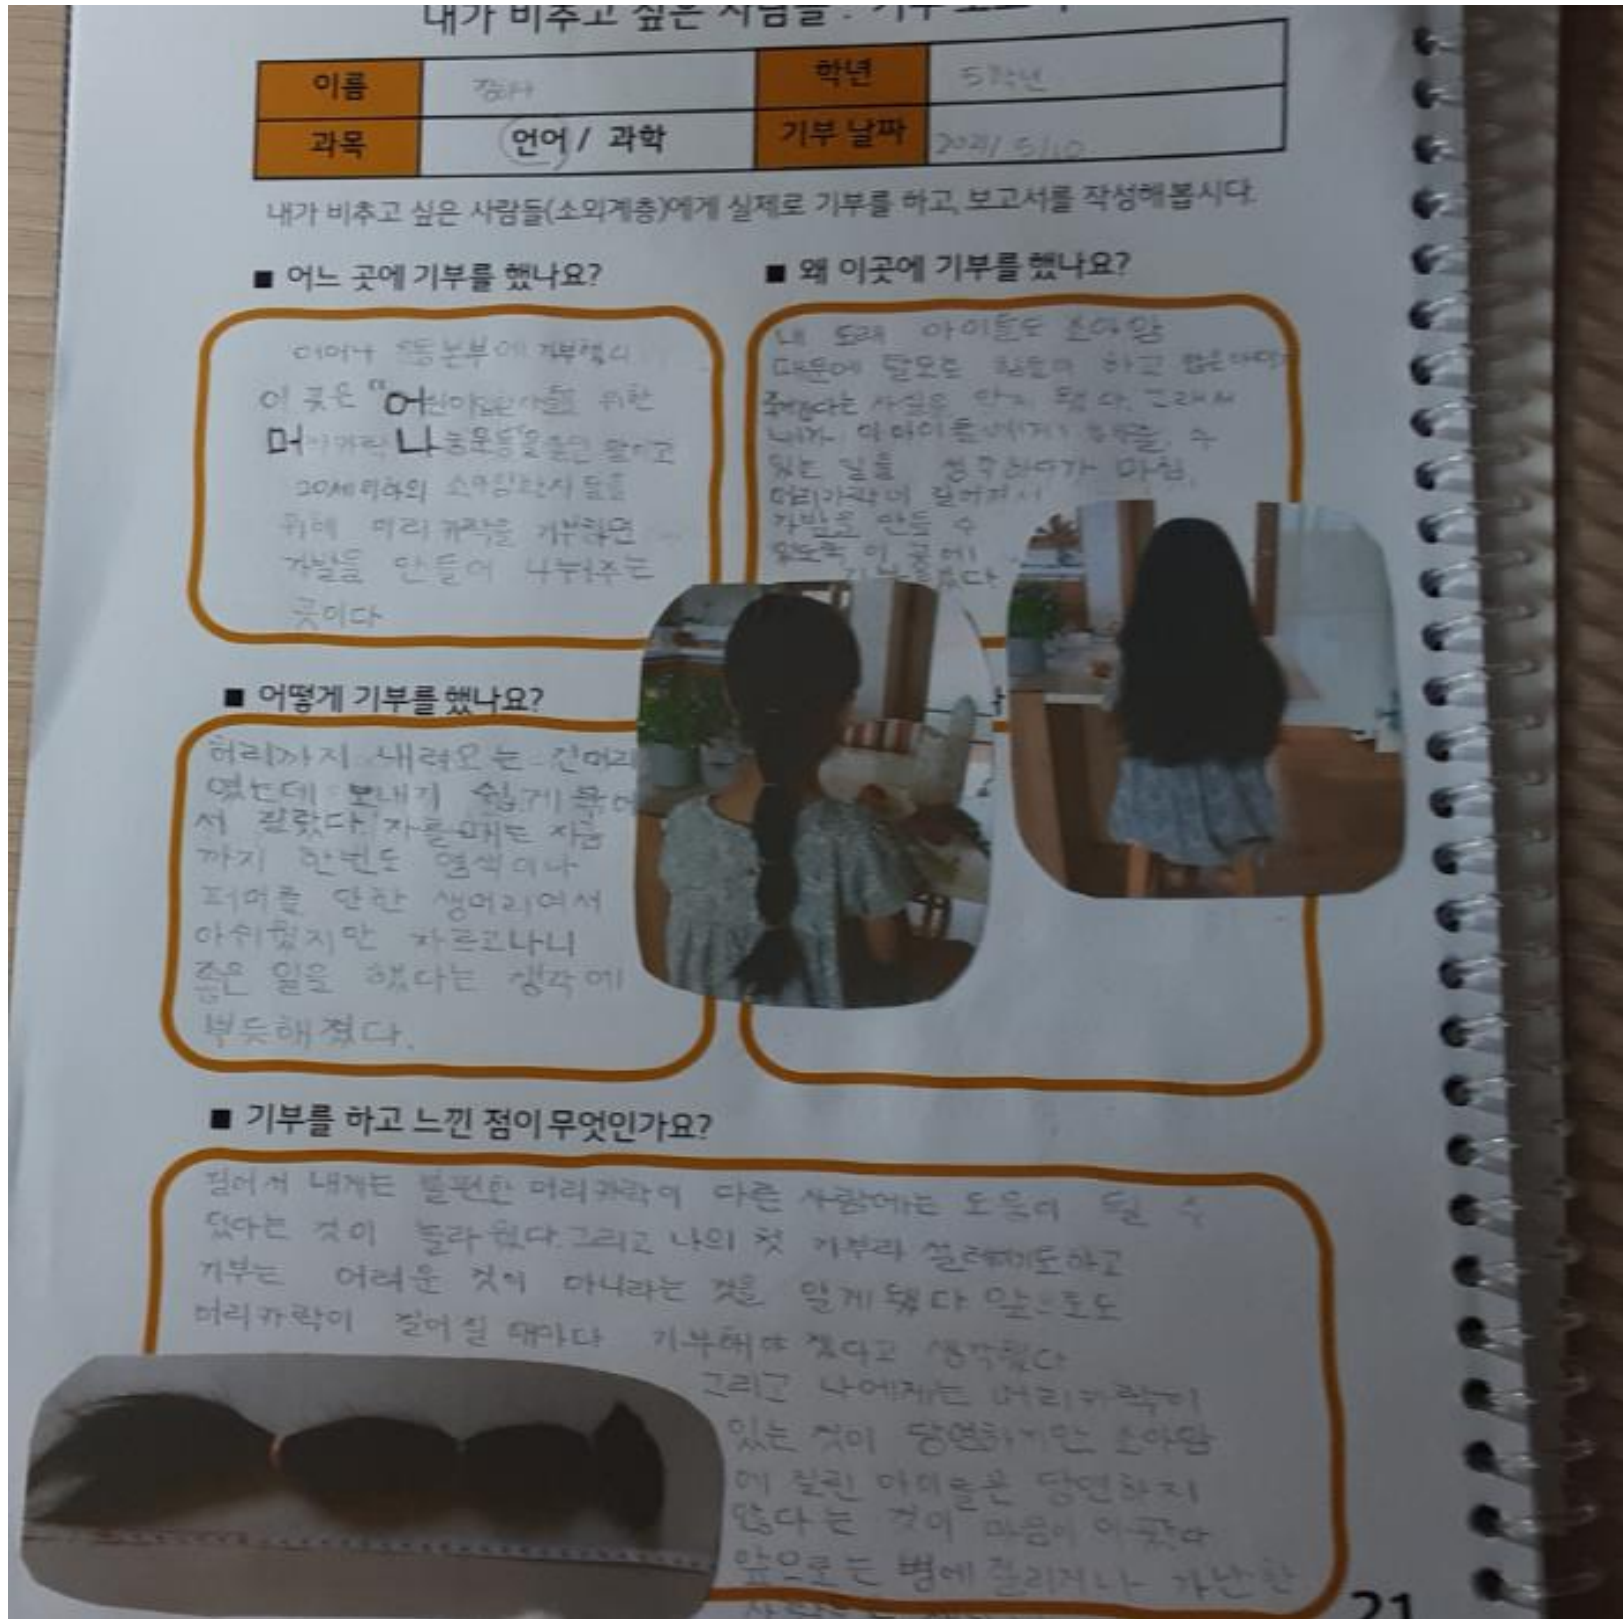 내가 비추고 싶은 사람들 : 기부 보고서
이름 학년 5학년
과목 언어 / 과학 기부 날짜 2021/ 5/10
내가 비추고 싶은 사람들(소외계층)에게 실제로 기부를 하고, 보고서를 작성해봅시다.
■ 어느 곳에 기부를 했나요?
어머나 운동본부에 기부했다
이 곳은 "어린이암환자들을 위한
머리카락 나눔운동"을 줄인 말이고
20세이하의 소아암환자 들을
위해 머리카락을 기부하면
가발을 만들어 나눠주는
곳이다
■ 왜 이곳에 기부를 했나요?
내 또래 아이들도 소아암
때문에 탈모로 힘들어 하고 많은아이가
는 사실을 알게 됐다. 그래서
내가 이 아이들에게 해줄 수
있는 일을 생각하다가 마침,
머리카락이 길어져서
가발을 만들 수
있도록 이 곳에
■ 어떻게 기부를 했나요?
허리까지 내려오는 긴머리
였는데 보내기 쉽게 묶어
서 잘랐다. 자를때는 지금
까지 한번도 염색이나
퍼머를 안한 생머리여서
아쉬웠지만 자르고나니
좋은 일을 했다는 생각에
뿌듯해졌다.
■ 기부를 하고 느낀 점이 무엇인가요?
길어서 내게는 불편한 머리카락이 다른 사람에게는 도움이 될 수
있다는 것이 놀라웠다. 그리고 나의 첫 기부라 설레기도하고
기부는 어려운 것이 아니라는 것을 알게됐다 앞으로도
머리카락이 길어질 때마다 기부해야 겠다고 생각했다
그리고 나에게는 머리카락이
있는 것이 당연하지만 소아암
에 걸린 아이들은 당연하지
않다는 것이 마음이 아팠다
앞으로는 병에 걸리거나 가난한
21